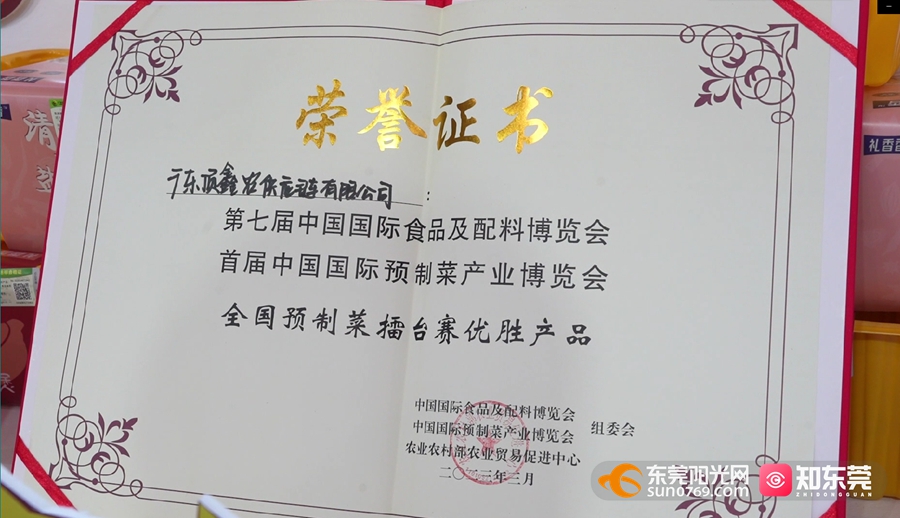 荣誉证书
广东顶鑫农供应链有限公司：
第七届中国国际食品及配料博览会
首届中国国际预制菜产业博览会
全国预制菜擂台赛优胜产品
中国国际食品及配料博览会
中国国际预制菜产业博览会 组委会
农业农村部农业贸易促进中心
二〇二三年三月
礼香香
东莞阳光网
sun0769.com
知东莞
ZHIDONGGUAN